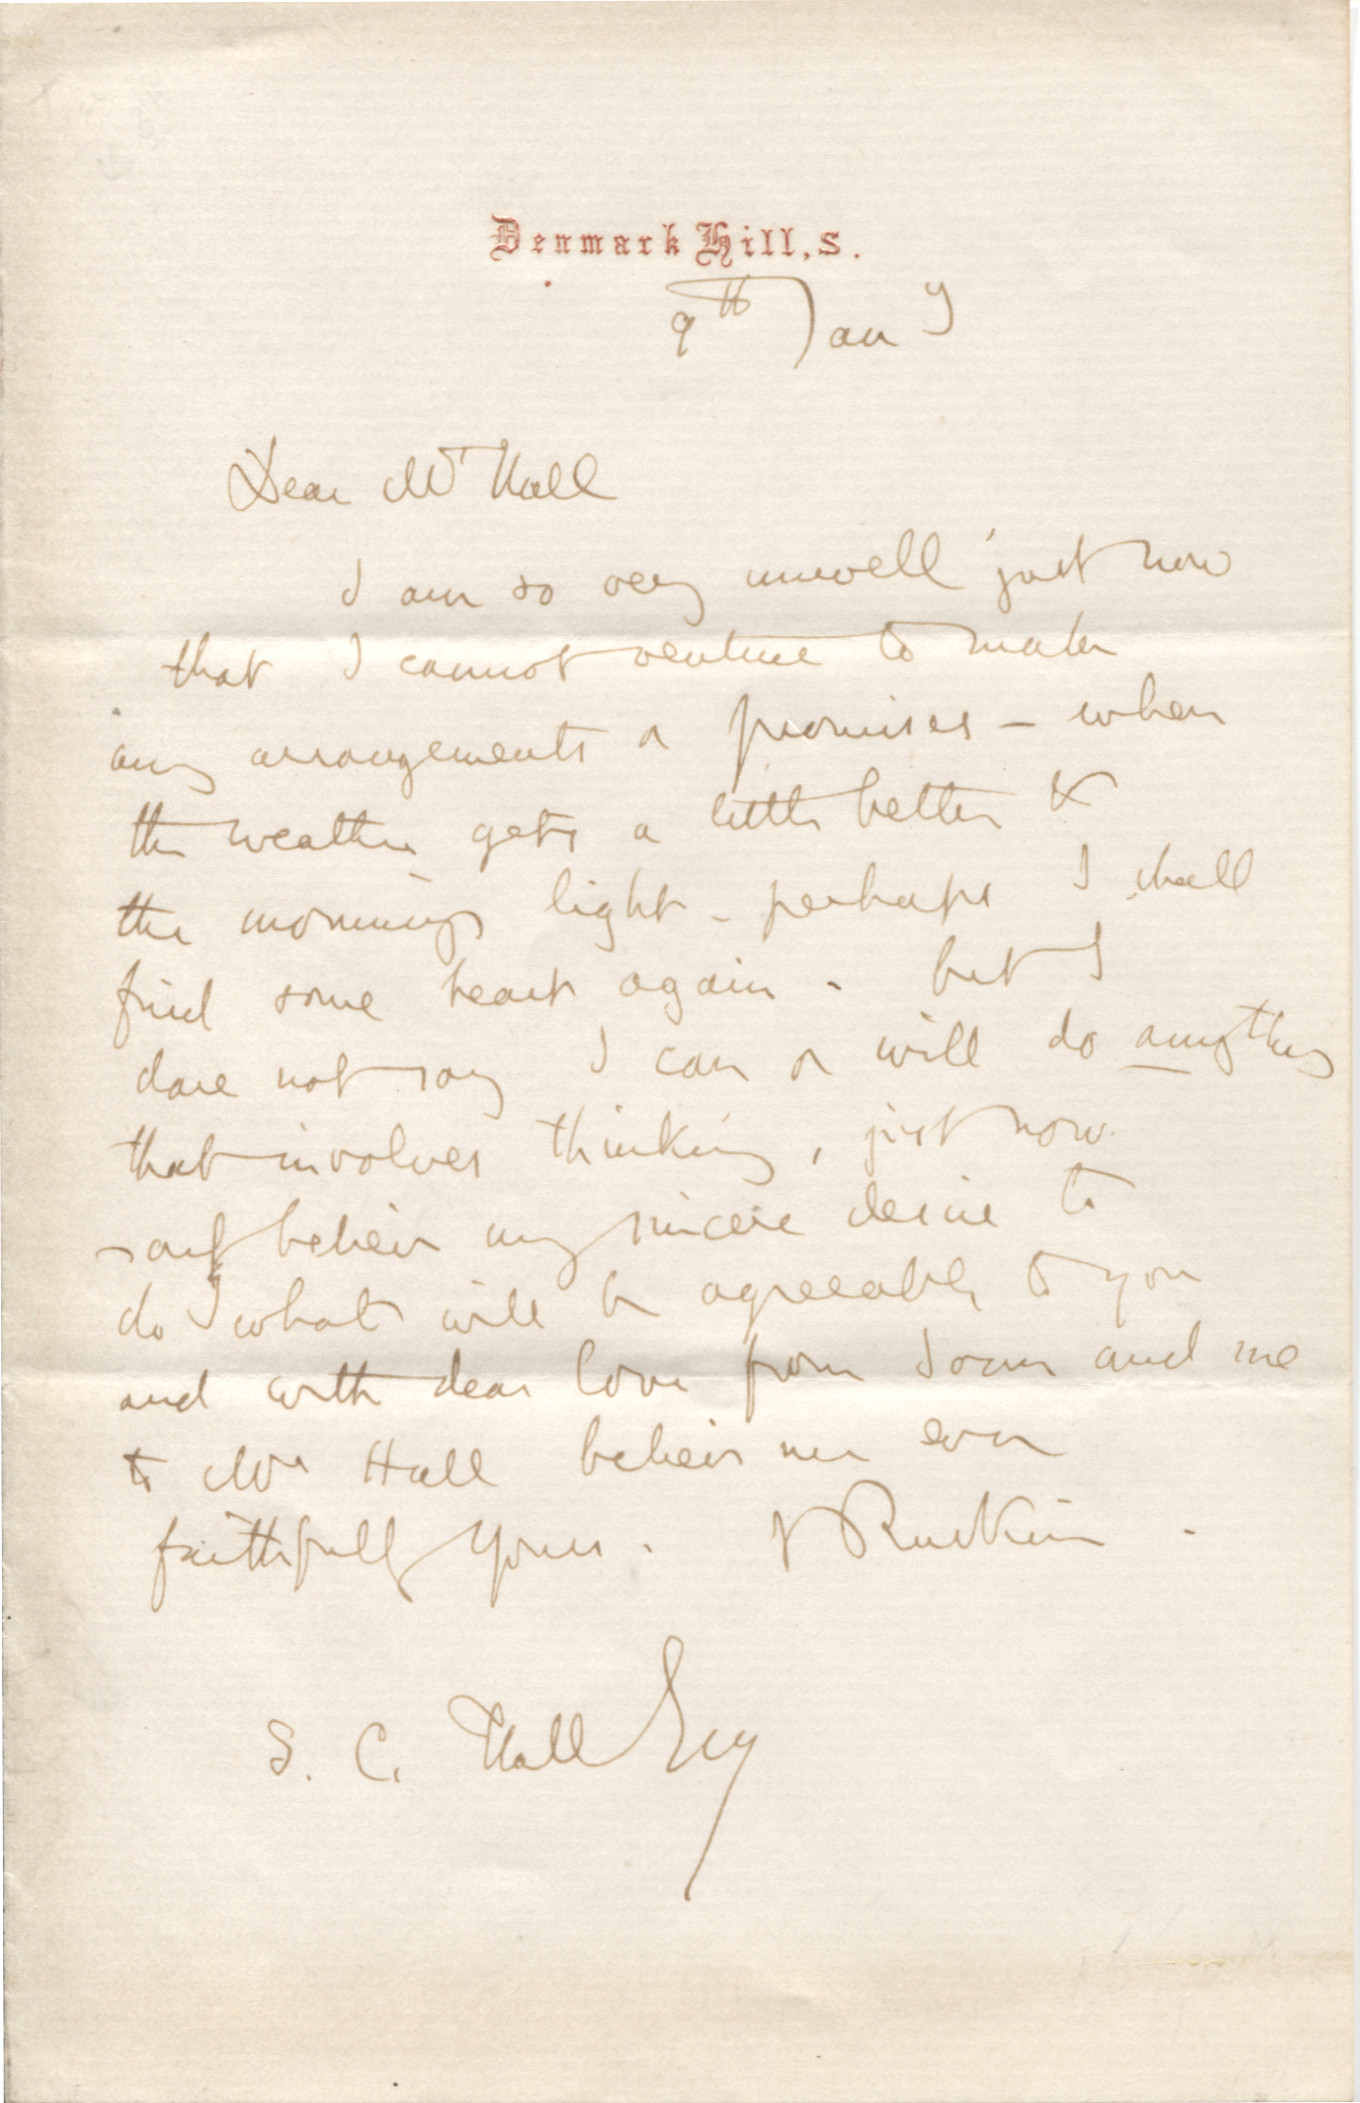 Denmark Hill, S.
9th Jany
Dear Mr Hall
I am so very unwell just now
that I cannot venture to make
any arrangements or promises - when
the weather gets a little better &
the mornings light - perhaps I shall
find some heart again. but I
dare not say I can or will do anything
that involves thinking, just now.
only believe my sincere desire to
do what will be agreeable to you
and with dear love from Joan and me
to Mrs Hall believe me ever
faithfully Yours. J Ruskin.
S. C. Hall Esq